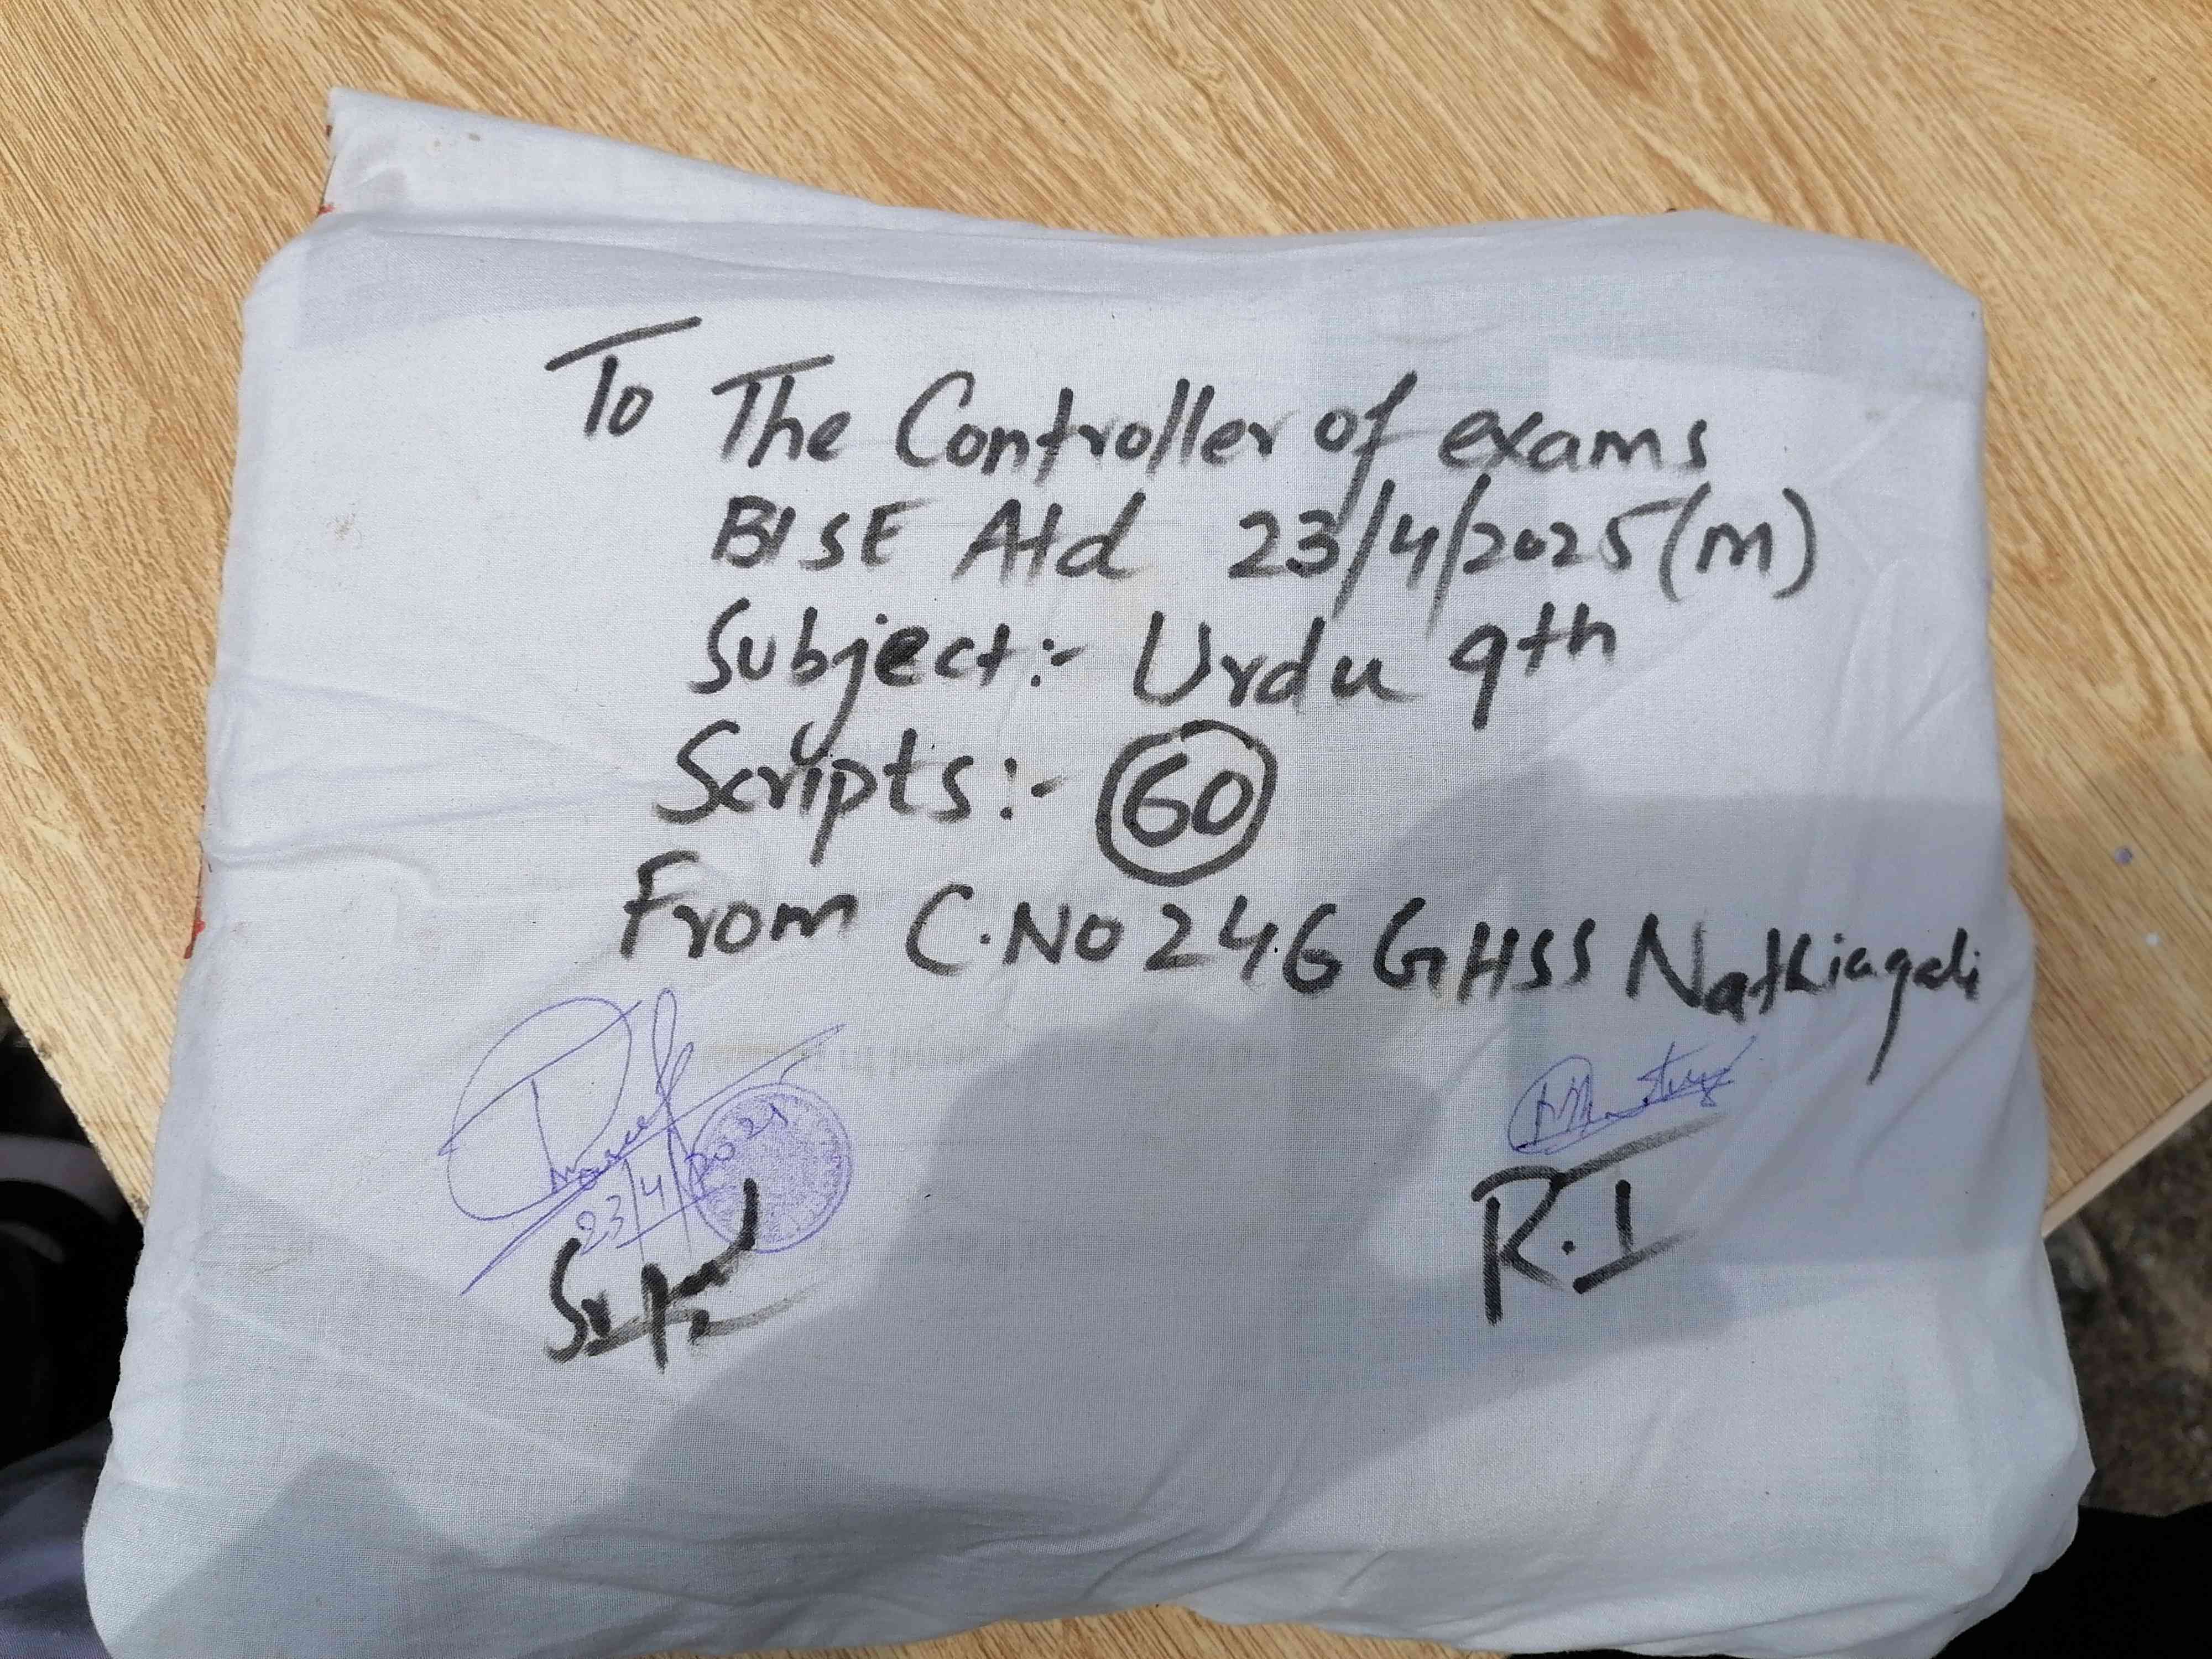 To The Controller of exams
BISE Atd 23/4/2025(M)
Subject:- Urdu 9th
Scripts:- 60
From C.No 246 GHSS Nathiagali
23/4/2025
R.I